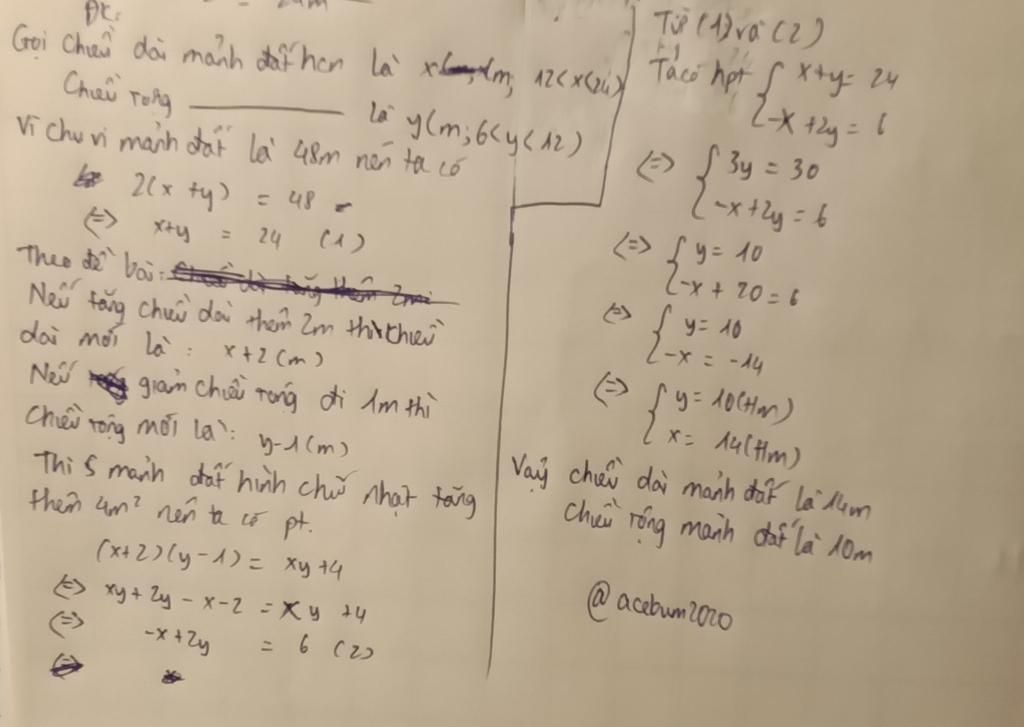 ĐK:
Gọi chiều dài mảnh đất hcn là x (m; 12<x<24)
Chiều rộng ———— là y (m; 6<y<12)
Vì chu vi mảnh đất là 48m nên ta có
2(x+y) = 48
<=> x+y = 24 (1)
Theo đề bài:
Nếu tăng chiều dài thêm 2m thì chiều
dài mới là: x+2 (m)
Nếu giảm chiều rộng đi 1m thì
chiều rộng mới là: y-1 (m)
Thì S mảnh đất hình chữ nhật tăng
thêm 4m² nên ta có pt.
(x+2)(y-1) = xy+4
<=> xy+2y-x-2 = xy +4
<=> -x+2y = 6 (2)
<=>
Từ (1) và (2)
Ta có hpt { x+y= 24
-x +2y = 6
<=> { 3y = 30
-x+2y = 6
<=> { y = 10
-x + 20 = 6
<=> { y = 10
-x = -14
<=> { y = 10 (tm)
x = 14 (tm)
Vậy chiều dài mảnh đất là 14m
chiều rộng mảnh đất là 10m
@acebum2020